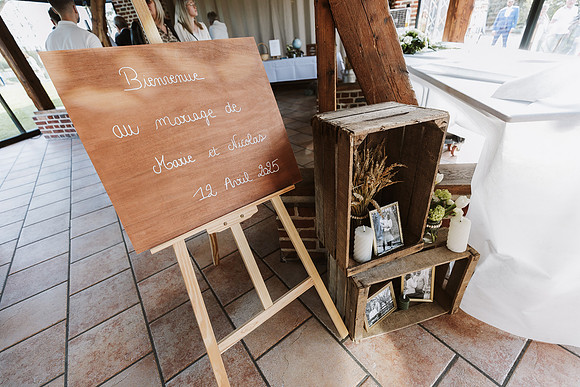 Bienvenue
au mariage de
Marie et Nicolas
12 Avril 2025